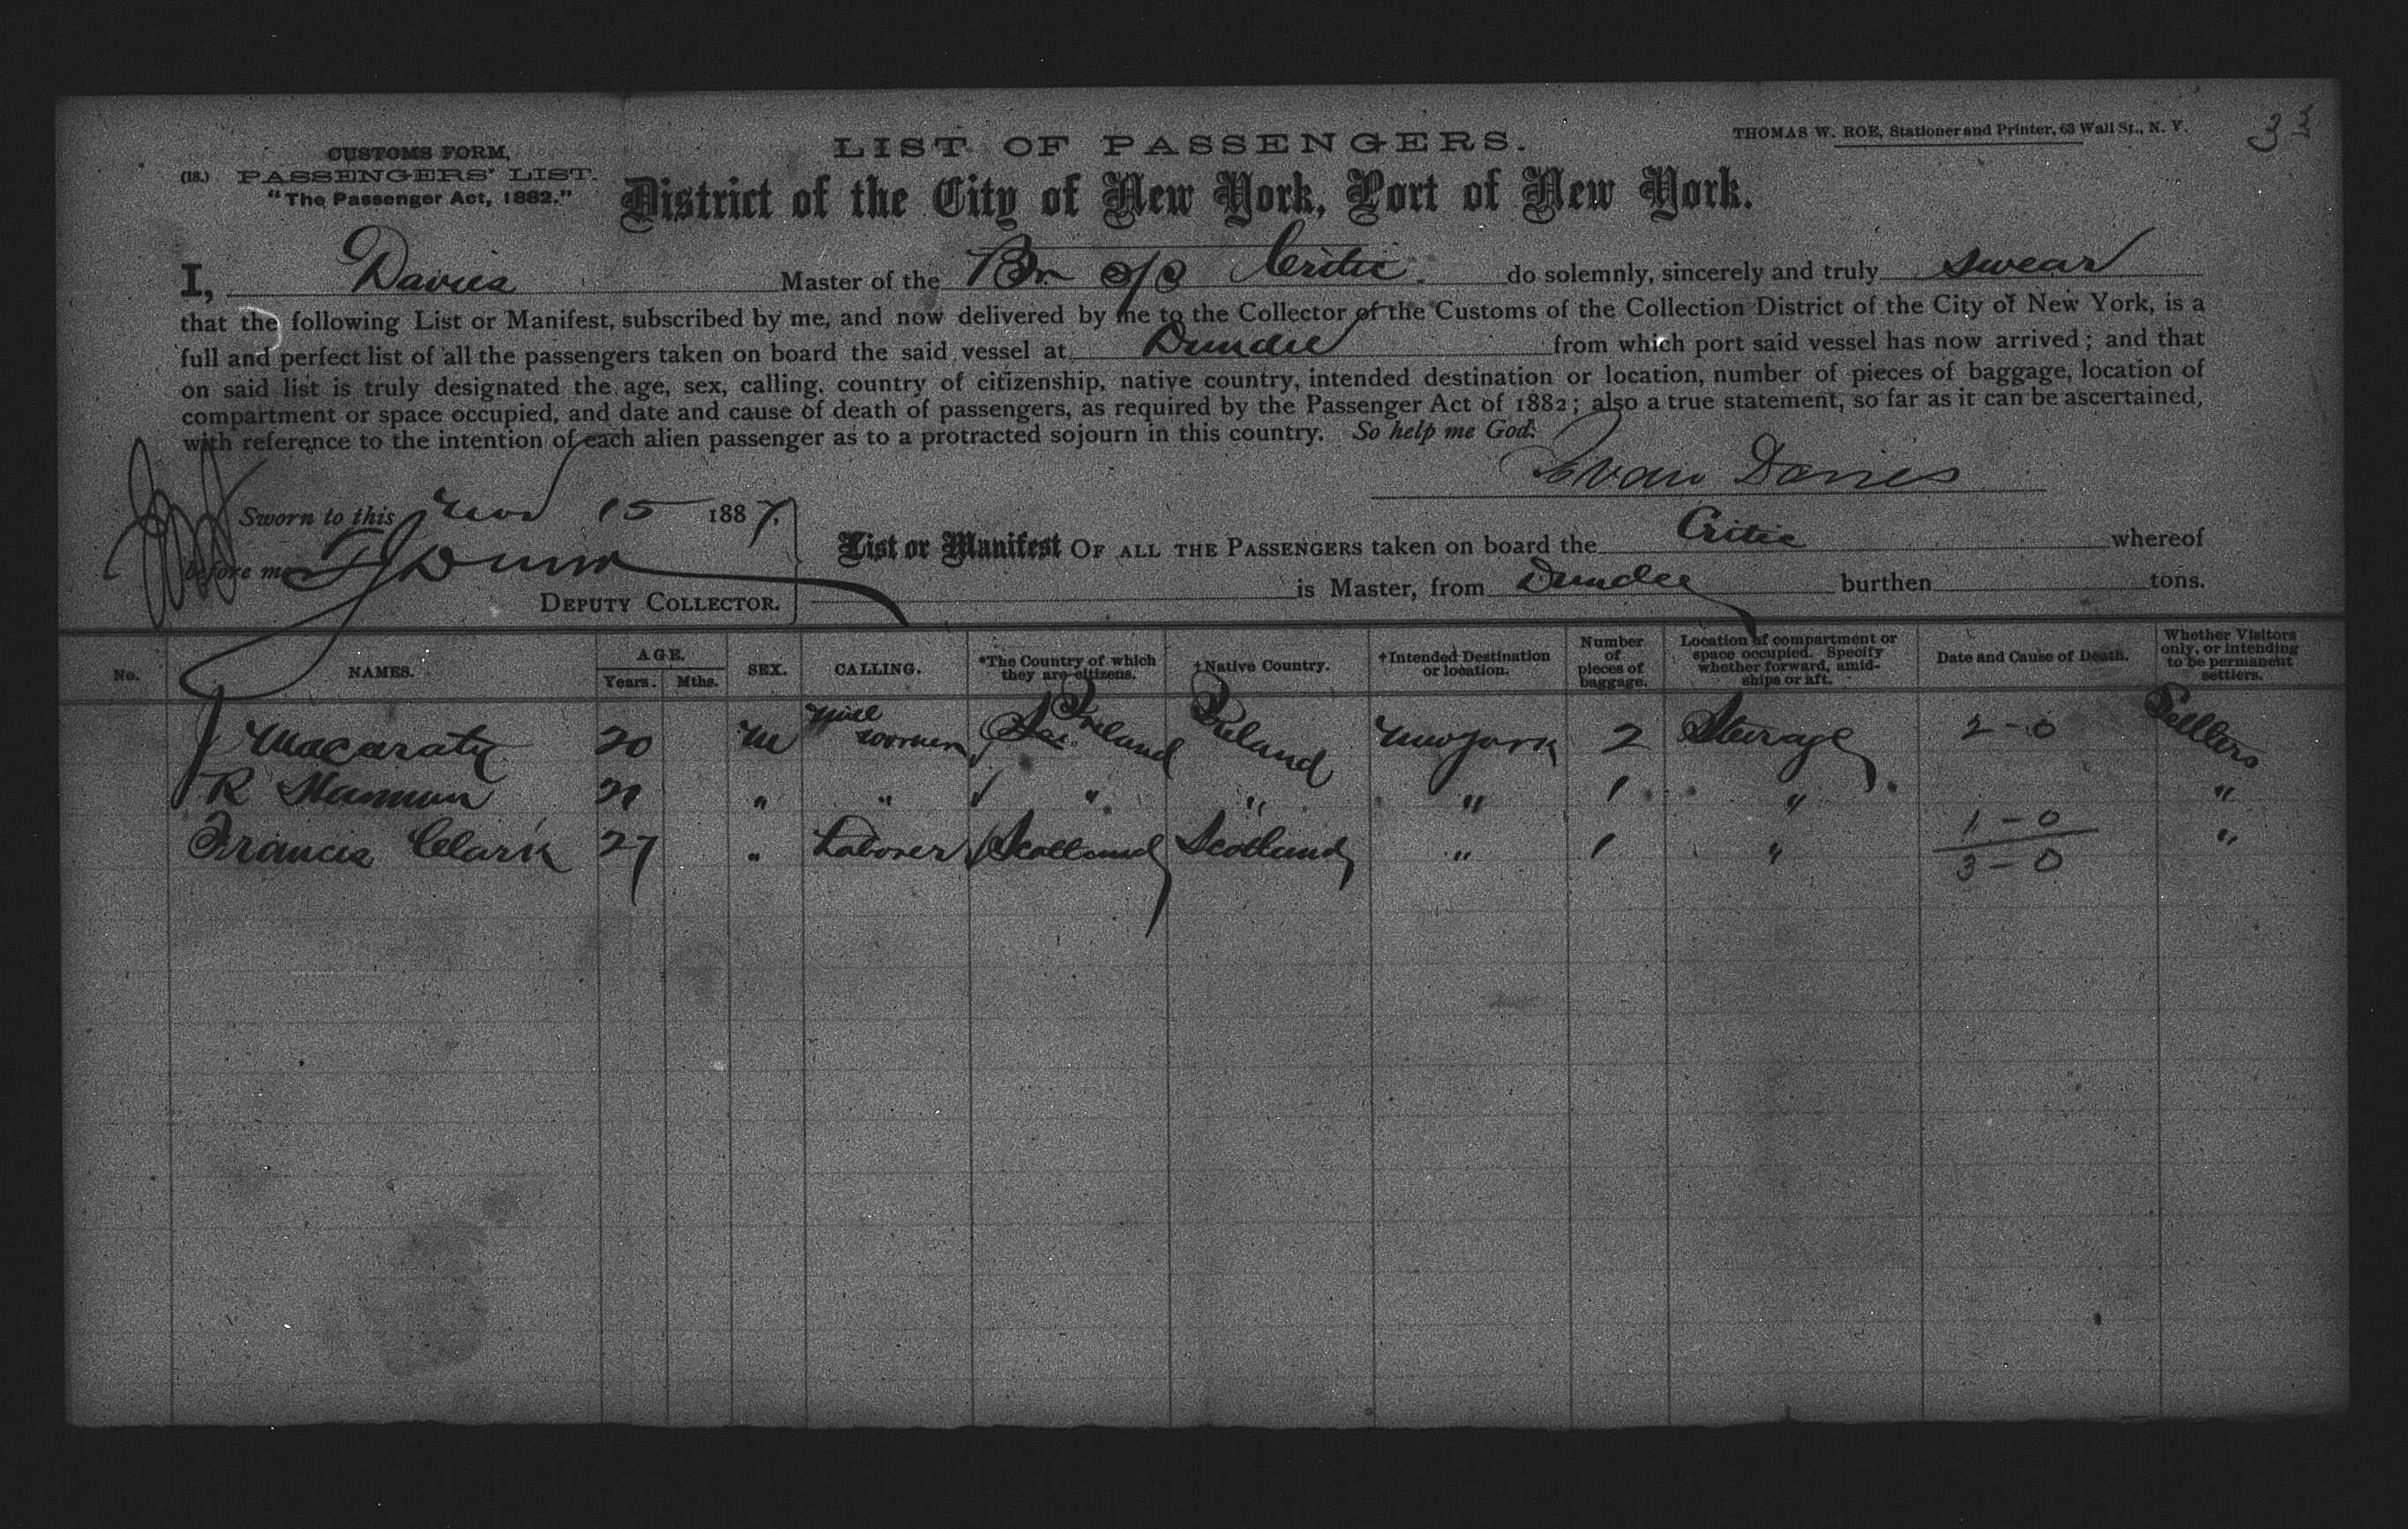 33
THOMAS W. ROE, Stationer and Printer, 63 Wall St., N. Y.
CUSTOMS FORM,
(18.) PASSENGERS' LIST.
"The Passenger Act, 1882."
LIST OF PASSENGERS.
District of the City of New York, Port of New York.
I, Davies Master of the Br S/S Critic do solemnly, sincerely and truly swear
that the following List or Manifest, subscribed by me, and now delivered by me to the Collector of the Customs of the Collection District of the City of New York, is a
full and perfect list of all the passengers taken on board the said vessel at Dundee from which port said vessel has now arrived; and that
on said list is truly designated the age, sex, calling, country of citizenship, native country, intended destination or location, number of pieces of baggage, location of
compartment or space occupied, and date and cause of death of passengers, as required by the Passenger Act of 1882; also a true statement, so far as it can be ascertained,
with reference to the intention of each alien passenger as to a protracted sojourn in this country. So help me God.
Evan Davies
Sworn to this Nov 15 1887,
before me Dunn
DEPUTY COLLECTOR.
List or Manifest OF ALL THE PASSENGERS taken on board the Critic whereof
is Master, from Dundee burthen tons.
No. NAMES. AGE. Years. Mths. SEX. CALLING. *The Country of which they are citizens. †Native Country. †Intended Destination or location. Number of pieces of baggage. Location of compartment or space occupied. Specify whether forward, amidships or aft. Date and Cause of Death. Whether Visitors only, or intending to be permanent settlers.
J Macaraty 20 M Mill worker Ireland Ireland New York 2 Steerage 2-0 Settlers
R 21 " " " " " 1 " "
Francis Clark 27 " Laborer Scotland Scotland " 1 " 1-0 "
3-0